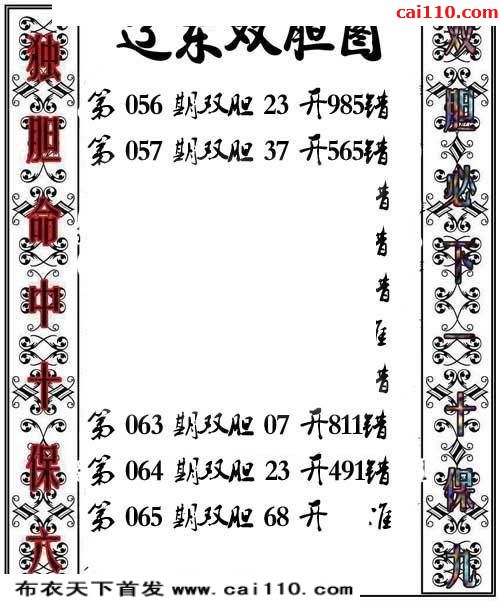 cai110.com
辽东双胆图
独胆命中十保六
双胆必下一十保九
第 056 期双胆 23 开985错
第 057 期双胆 37 开565错
错
错
错
准
错
第 063 期双胆 07 开811错
第 064 期双胆 23 开491错
第 065 期双胆 68 开 准
布衣天下首发 www.cai110.com